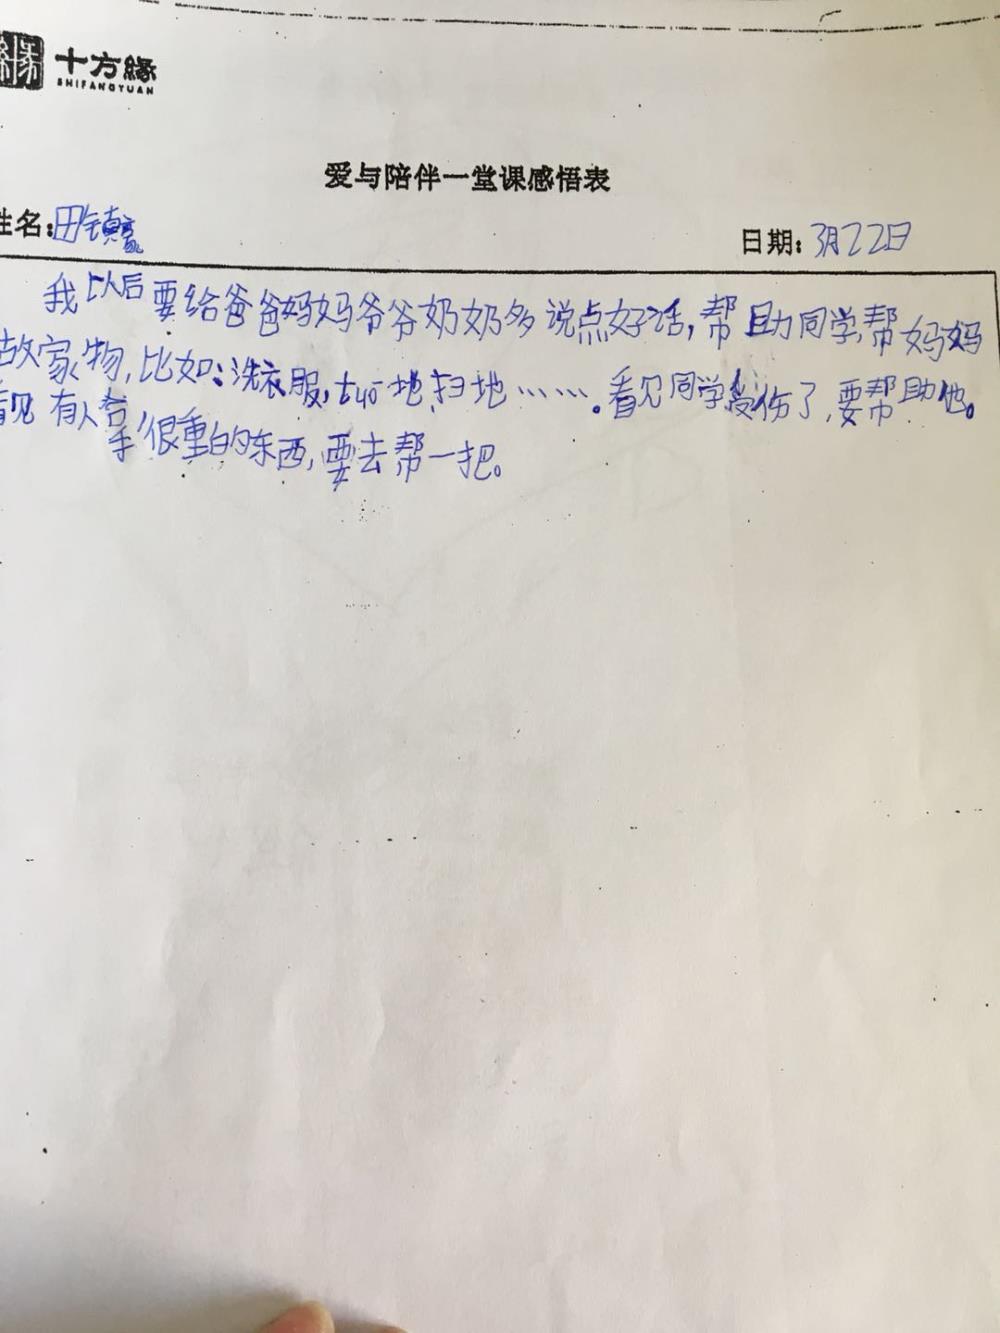 十方緣
SHIFANGYUAN
爱与陪伴一堂课感悟表
姓名:田镇豪
日期:3月22日
我以后要给爸爸妈妈爷爷奶奶多说点好话,帮助同学,帮妈妈
故家物,比如:洗衣服,tuō地,扫地……。看见同学受伤了,要帮助他。
看见有人拿很重的东西,要去帮一把。